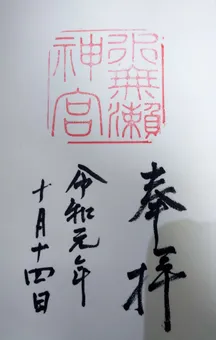 水無瀬
神宮
奉拝
令和元年
十月十四日